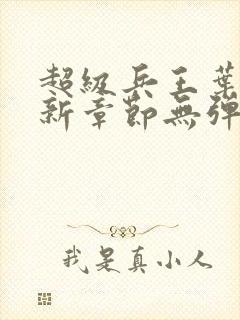 超級兵王葉
新章節無彈
我是真小人